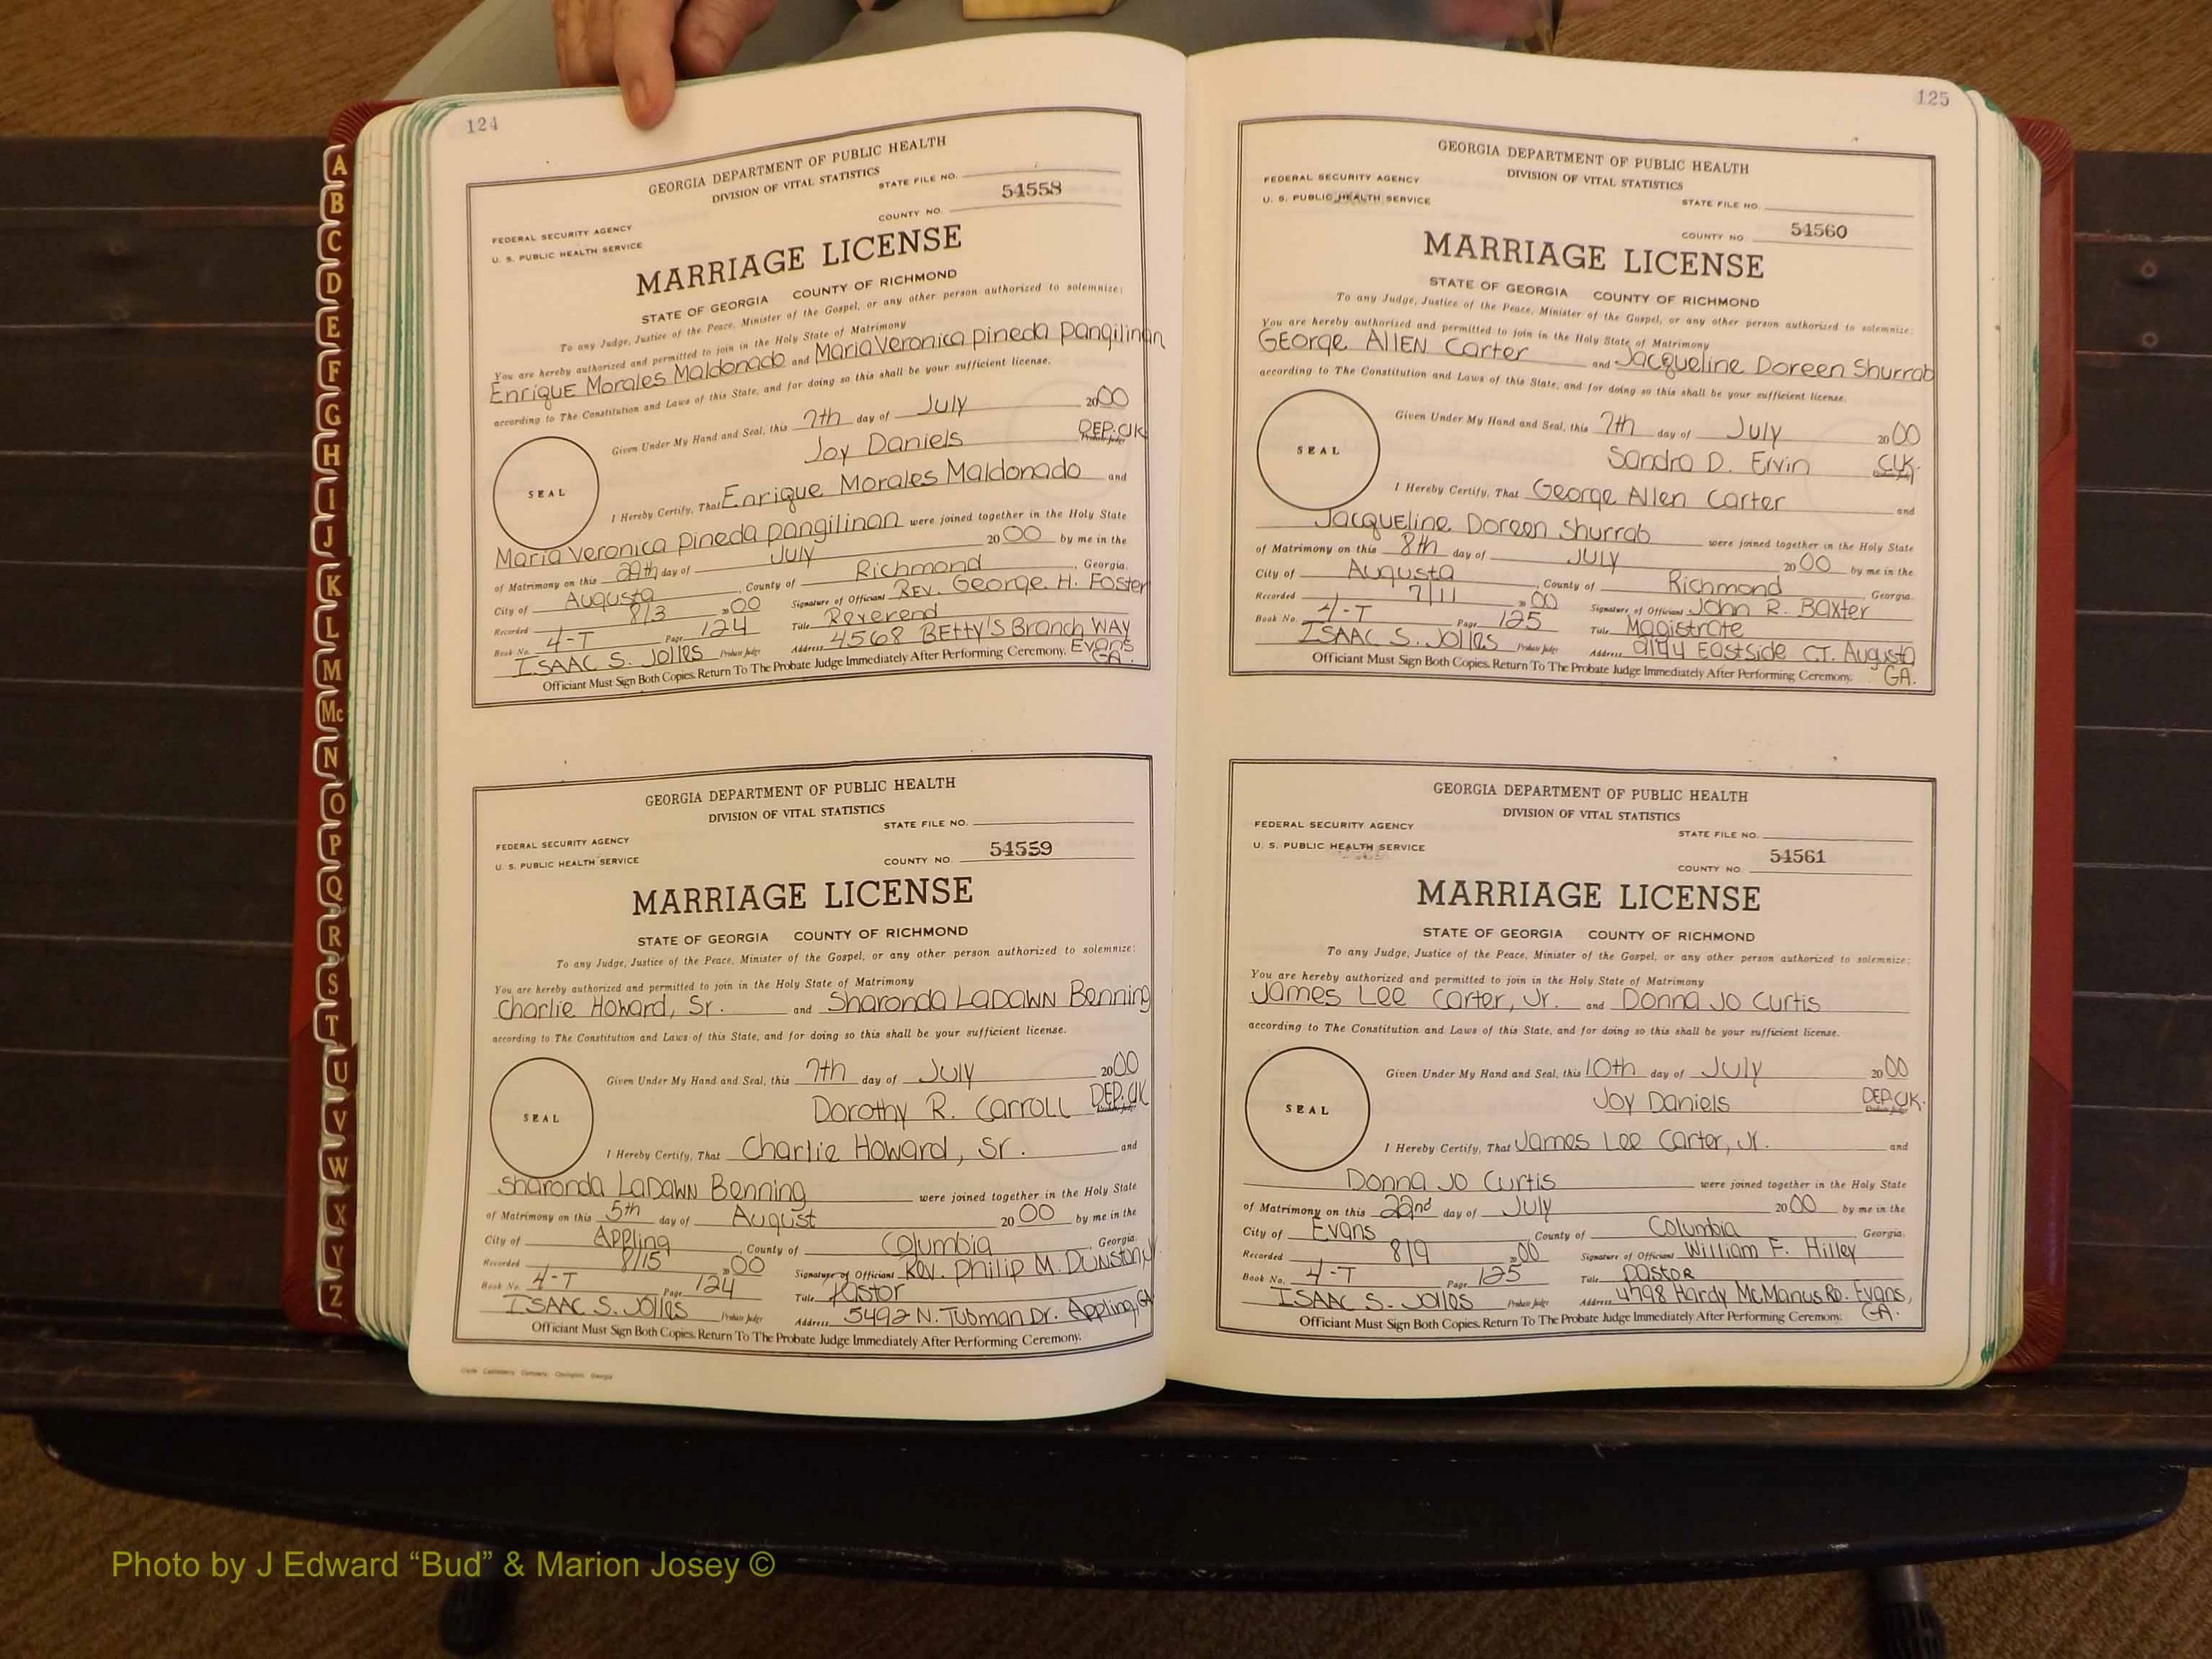 124
GEORGIA DEPARTMENT OF PUBLIC HEALTH
DIVISION OF VITAL STATISTICS
STATE FILE NO.
FEDERAL SECURITY AGENCY
U. S. PUBLIC HEALTH SERVICE
COUNTY NO. 54558
MARRIAGE LICENSE
STATE OF GEORGIA COUNTY OF RICHMOND
To any Judge, Justice of the Peace, Minister of the Gospel, or any other person authorized to solemnize:
You are hereby authorized and permitted to join in the Holy State of Matrimony
Enrique Morales Maldonado and Maria Veronica Pineda Pangilinan
according to The Constitution and Laws of this State, and for doing so this shall be your sufficient license.
Given Under My Hand and Seal, this 7th day of July 2000
Joy Daniels DEP. Clk
SEAL
I Hereby Certify, That Enrique Morales Maldonado and
Maria Veronica Pineda Pangilinan were joined together in the Holy State
of Matrimony on this 29th day of July 2000 by me in the
City of Augusta, County of Richmond, Georgia.
Recorded 8/3 2000 Signature of Officiant Rev. George H. Foster
Book No. 4-T Page 124 Title Reverend
ISAAC S. Jolles Probate Judge Address 4568 Betty's Branch Way Evans GA.
Officiant Must Sign Both Copies. Return To The Probate Judge Immediately After Performing Ceremony.
GEORGIA DEPARTMENT OF PUBLIC HEALTH
DIVISION OF VITAL STATISTICS
STATE FILE NO.
FEDERAL SECURITY AGENCY
U. S. PUBLIC HEALTH SERVICE
COUNTY NO. 54559
MARRIAGE LICENSE
STATE OF GEORGIA COUNTY OF RICHMOND
To any Judge, Justice of the Peace, Minister of the Gospel, or any other person authorized to solemnize:
You are hereby authorized and permitted to join in the Holy State of Matrimony
Charlie Howard, Sr. and Sharonda LaDawn Benning
according to The Constitution and Laws of this State, and for doing so this shall be your sufficient license.
Given Under My Hand and Seal, this 7th day of July 2000
Dorothy R. Carroll DEP. Clk
SEAL
I Hereby Certify, That Charlie Howard, Sr. and
Sharonda LaDawn Benning were joined together in the Holy State
of Matrimony on this 5th day of August 2000 by me in the
City of Appling, County of Columbia, Georgia.
Recorded 8/15 2000 Signature of Officiant Rev. Philip M. Dunston, Jr.
Book No. 4-T Page 124 Title Pastor
ISAAC S. Jolles Probate Judge Address 5492 N. Tubman Dr. Appling, GA
Officiant Must Sign Both Copies. Return To The Probate Judge Immediately After Performing Ceremony.
125
GEORGIA DEPARTMENT OF PUBLIC HEALTH
DIVISION OF VITAL STATISTICS
FEDERAL SECURITY AGENCY
U. S. PUBLIC HEALTH SERVICE
STATE FILE NO.
COUNTY NO. 54560
MARRIAGE LICENSE
STATE OF GEORGIA COUNTY OF RICHMOND
To any Judge, Justice of the Peace, Minister of the Gospel, or any other person authorized to solemnize:
You are hereby authorized and permitted to join in the Holy State of Matrimony
George Allen Carter and Jacqueline Doreen Shurrab
according to The Constitution and Laws of this State, and for doing so this shall be your sufficient license.
Given Under My Hand and Seal, this 7th day of July 2000
Sandra D. Ervin Clk.
SEAL
I Hereby Certify, That George Allen Carter and
Jacqueline Doreen Shurrab were joined together in the Holy State
of Matrimony on this 8th day of July 2000 by me in the
City of Augusta, County of Richmond, Georgia.
Recorded 7/11 2000 Signature of Officiant John R. Baxter
Book No. 4-T Page 125 Title Magistrate
ISAAC S. Jolles Probate Judge Address Eastside CT. Augusta GA.
Officiant Must Sign Both Copies. Return To The Probate Judge Immediately After Performing Ceremony.
GEORGIA DEPARTMENT OF PUBLIC HEALTH
DIVISION OF VITAL STATISTICS
FEDERAL SECURITY AGENCY
U. S. PUBLIC HEALTH SERVICE
STATE FILE NO.
COUNTY NO. 54561
MARRIAGE LICENSE
STATE OF GEORGIA COUNTY OF RICHMOND
To any Judge, Justice of the Peace, Minister of the Gospel, or any other person authorized to solemnize:
You are hereby authorized and permitted to join in the Holy State of Matrimony
James Lee Carter, Jr. and Donna Jo Curtis
according to The Constitution and Laws of this State, and for doing so this shall be your sufficient license.
Given Under My Hand and Seal, this 10th day of July 2000
Joy Daniels DEP. Clk.
SEAL
I Hereby Certify, That James Lee Carter, Jr. and
Donna Jo Curtis were joined together in the Holy State
of Matrimony on this 22nd day of July 2000 by me in the
City of Evans, County of Columbia, Georgia.
Recorded 8/9 2000 Signature of Officiant William F. Hilley
Book No. 4-T Page 125 Title Pastor
ISAAC S. Jolles Probate Judge Address 4798 Hardy McManus Rd. Evans, GA.
Officiant Must Sign Both Copies. Return To The Probate Judge Immediately After Performing Ceremony.
A
B
C
D
E
F
G
H
I
J
K
L
M
Mc
N
O
P
Q
R
S
T
U
V
W
X
Y
Z
Photo by J Edward “Bud” & Marion Josey ©